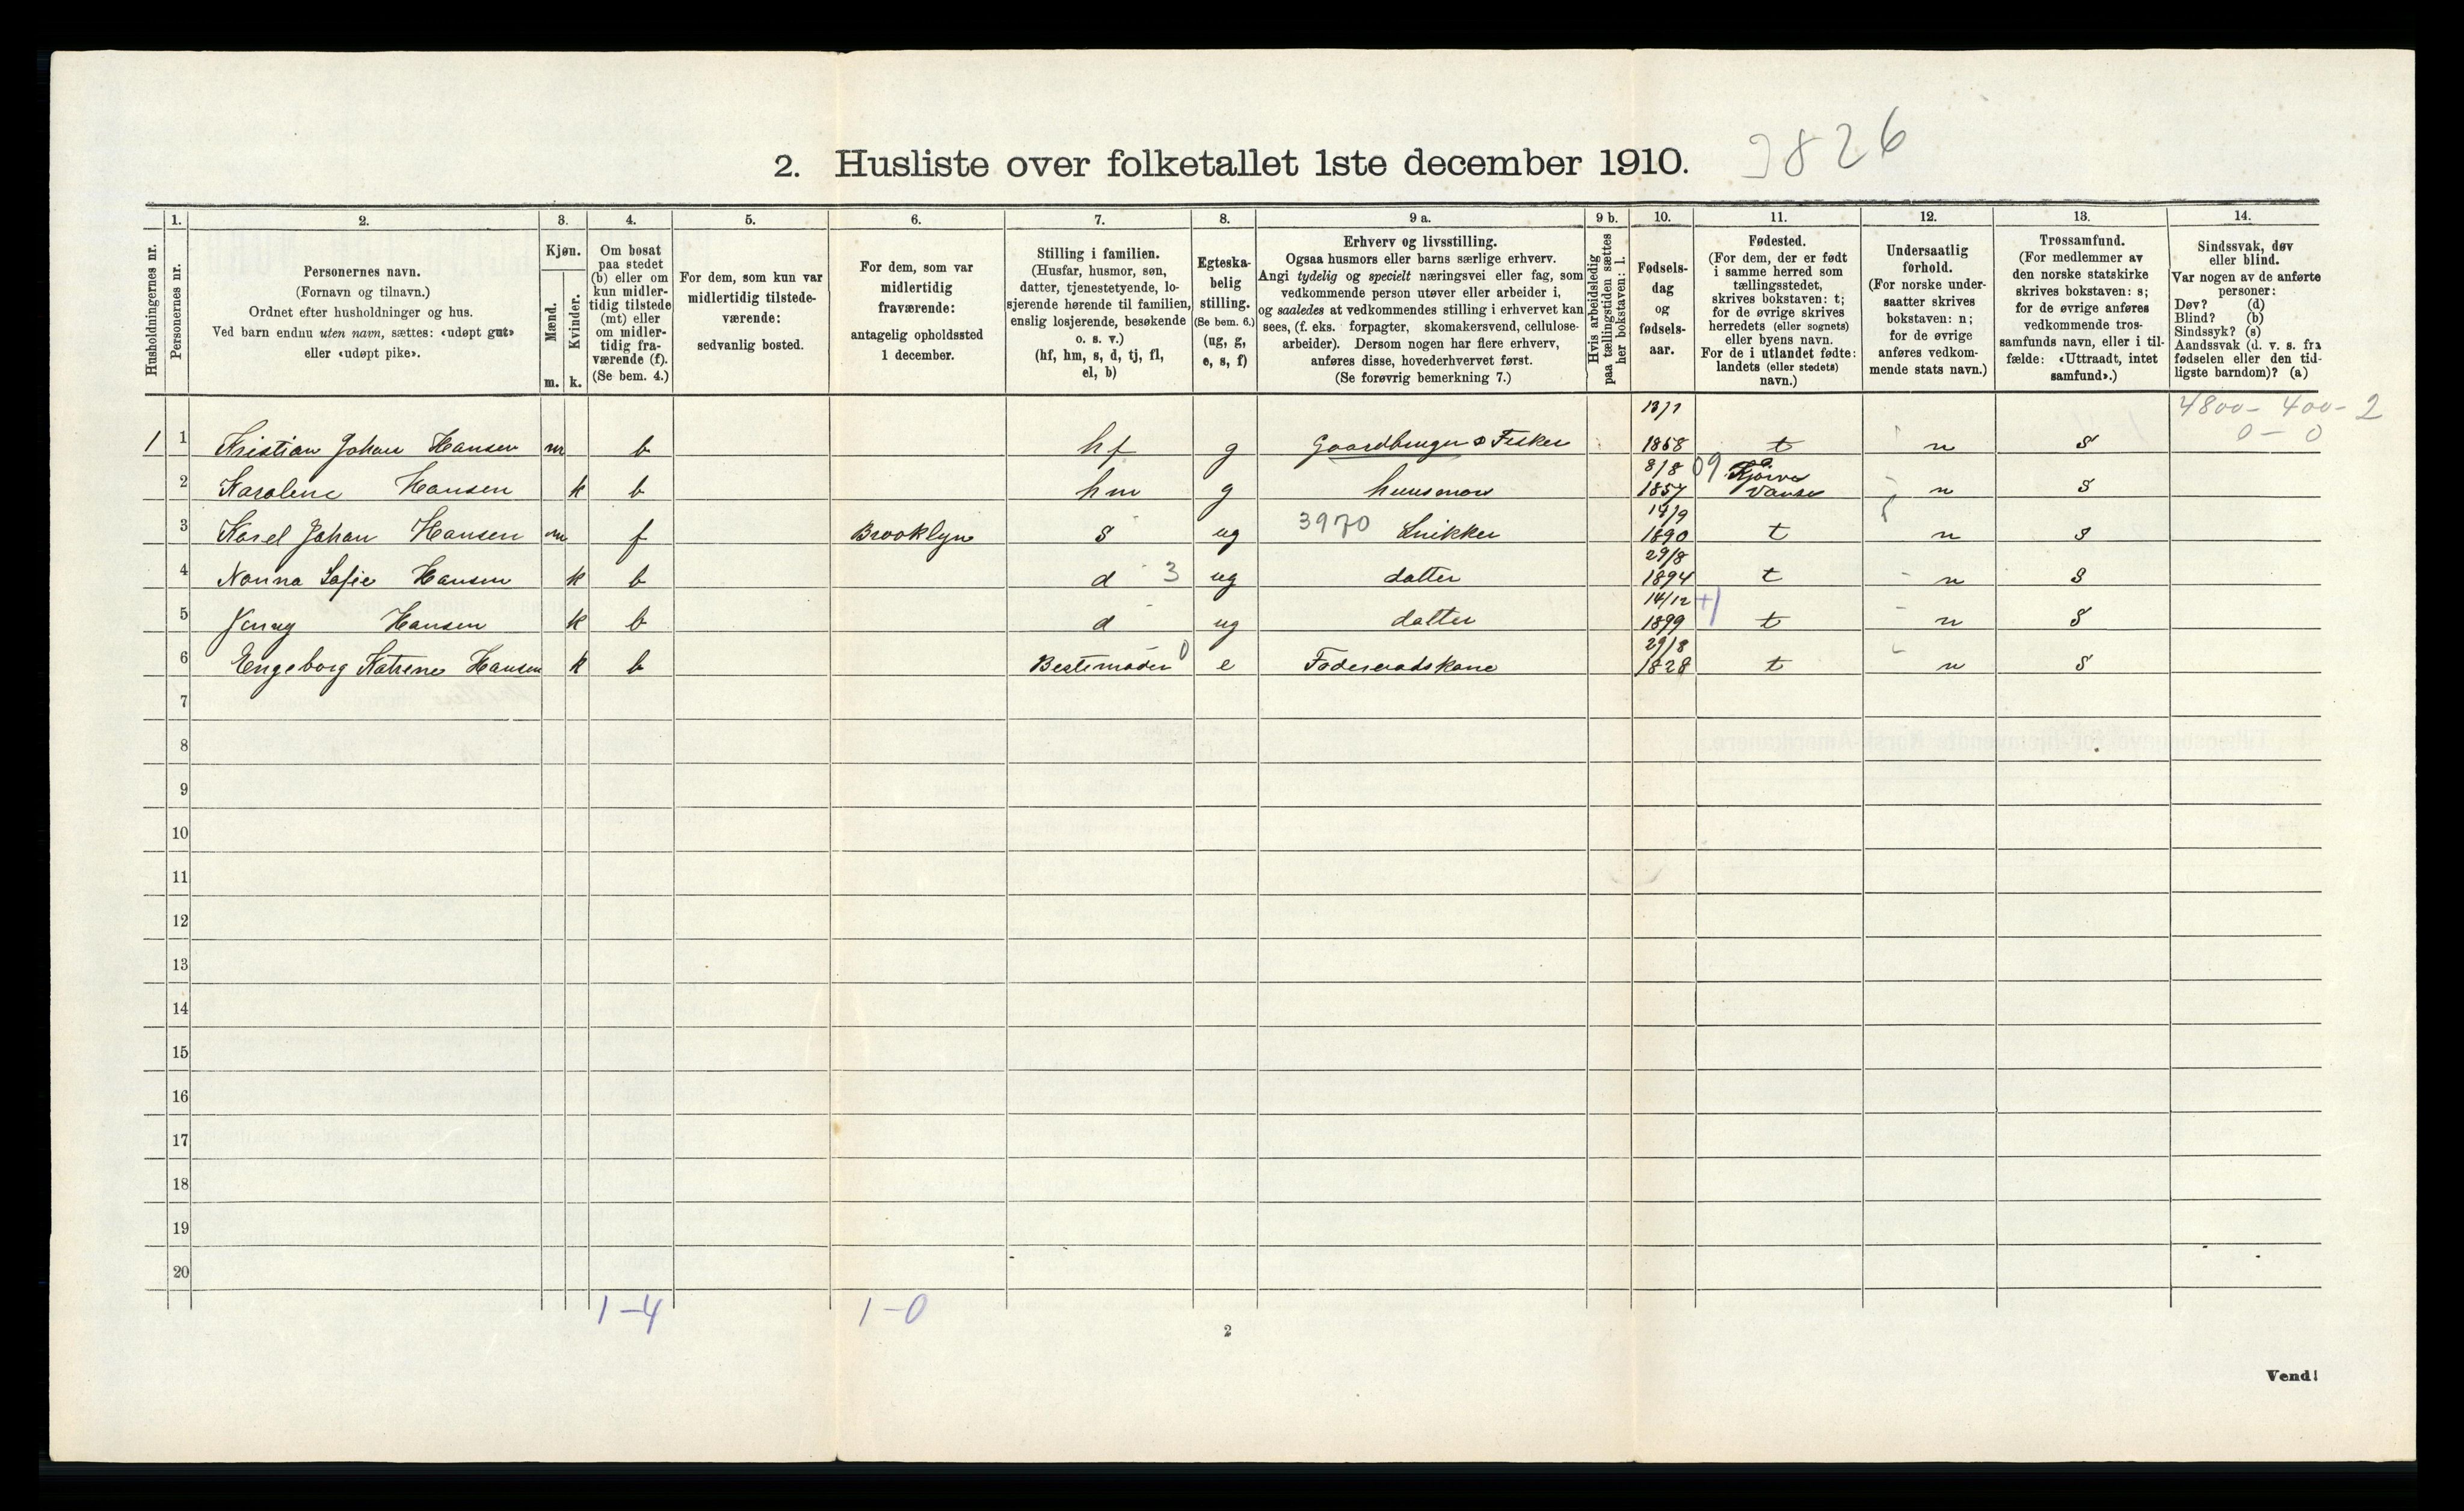 2. Husliste over folketallet 1ste december 1910. 3826
Husholdningernes nr.
1. Personernes nr.
2. Personernes navn.
(Fornavn og tilnavn.)
Ordnet efter husholdninger og hus.
Ved barn endnu uten navn, sættes: «udøpt gut»
eller «udøpt pike».
3. Kjøn.
Mænd. m.
Kvinder. k.
4. Om bosat
paa stedet
(b) eller om
kun midler-
tidig tilstede
(mt) eller
om midler-
tidig fra-
værende (f).
(Se bem. 4.)
5. For dem, som kun var
midlertidig tilstede-
værende:
sedvanlig bosted.
6. For dem, som var
midlertidig
fraværende:
antagelig opholdssted
1 december.
7. Stilling i familien.
(Husfar, husmor, søn,
datter, tjenestetyende, lo-
sjerende hørende til familien,
enslig losjerende, besøkende
o. s. v.)
(hf, hm, s, d, tj, fl,
el, b)
8. Egteska-
belig
stilling.
(Se bem. 6.)
(ug, g,
e, s, f)
9 a. Erhverv og livsstilling.
Ogsaa husmors eller barns særlige erhverv.
Angi tydelig og specielt næringsvei eller fag, som
vedkommende person utøver eller arbeider i,
og saaledes at vedkommendes stilling i erhvervet kan
sees, (f. eks. forpagter, skomakersvend, cellulose-
arbeider). Dersom nogen har flere erhverv,
anføres disse, hovederhvervet først.
(Se forøvrig bemerkning 7.)
9 b. Hvis arbeidsledig
paa tællingstiden sættes
her bokstaven: l.
10. Fødsels-
dag
og
fødsels-
aar.
11. Fødested.
(For dem, der er født
i samme herred som
tællingsstedet,
skrives bokstaven: t;
for de øvrige skrives
herredets (eller sognets)
eller byens navn.
For de i utlandet fødte:
landets (eller stedets)
navn.)
12. Undersaatlig
forhold.
(For norske under-
saatter skrives
bokstaven: n;
for de øvrige
anføres vedkom-
mende stats navn.)
13. Trossamfund.
(For medlemmer av
den norske statskirke
skrives bokstaven: s;
for de øvrige anføres
vedkommende tros-
samfunds navn, eller i til-
fælde: «Uttraadt, intet
samfund».)
14. Sindssvak, døv
eller blind.
Var nogen av de anførte
personer:
Døv? (d)
Blind? (b)
Sindssyk? (s)
Aandssvak (d. v. s. fra
fødselen eller den tid-
ligste barndom)? (a)
4800 - 400 - 2
0 - 0
1 1 Kristian Johan Hansen m b hf g Gaardbruger & Fisker 13/7 1868 t n S
2 Karolene Hansen k b hm g huusmor 8/8 1857 09 Vanse n S
3 Karel Johan Hansen m f Brooklyn s ug 3970 Snikker 1890 t n S
4 Nanna Sofie Hansen k b d 3 ug datter 29/8 1894 t n S
5 Jenny Hansen k b d ug datter 14/12 1899 +1 t n S
6 Engeborg Katrene Hansen k b Bestemoder 0 e Foderaadskone 29/8 1828 t n S
7
8
9
10
11
12
13
14
15
16
17
18
19
20
1 - 4 1 - 0
2
Vend!